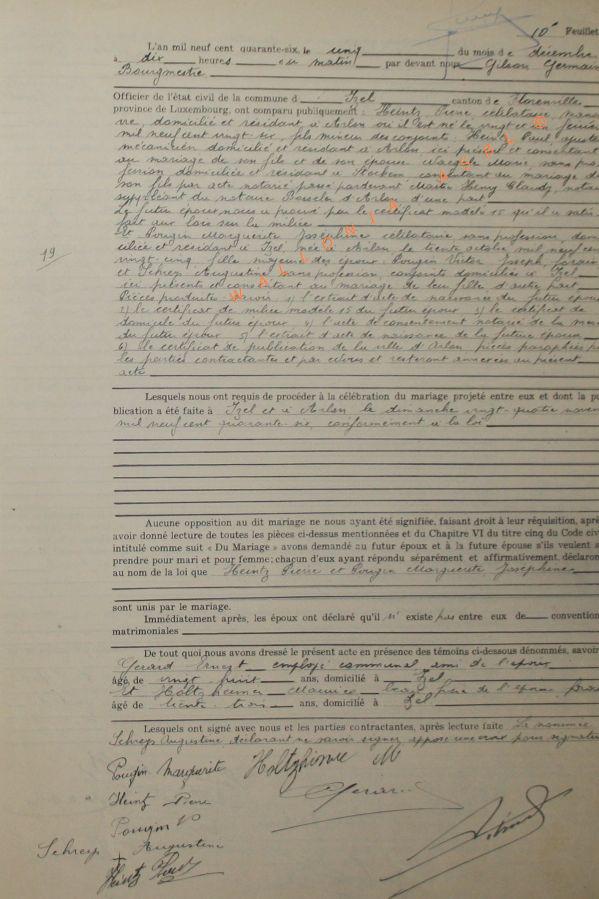 10e Feuillet
L'an mil neuf cent quarante-six, le cinq du mois de décembre
à dix heures du matin par devant nous, Gilson Germain
Bourgmestre
Officier de l'état civil de la commune d Izel canton de Florenville
province de Luxembourg, ont comparu publiquement : Heintz Pierre célibataire
domicilié et résidant à Arlon où il est né le vingt et un février
mil neuf cent vingt six, fils mineur des conjoints : Heintz Paul, ajusteur
mécanicien domicilié et résidant à Arlon ici présent et consentant
au mariage de son fils et de son épouse Marie sans pro
fession domiciliée et résidant à consentant au mariage de
son fils par acte notarié passé pardevant Maître Henry Claudy, notaire
suppléant du notaire d'Arlon d'une part
Le futur époux nous a prouvé par le certificat modèle 15 qu'il a satis
fait aux lois sur la milice
Et Pougin Marguerite Joséphine célibataire sans profession domi
ciliée et résidant à Izel née à Arlon le trente octobre mil neuf cent
vingt-cinq, fille majeure des époux Pougin Victor Joseph
et Schreps Augustine sans profession, conjoints domiciliés à Izel
ici présents et consentant au mariage de leur fille d'autre part
Pièces produites savoir 1) l'extrait d'acte de naissance du futur époux
2) le certificat de milice modèle 15 du futur époux 3) le certificat de
domicile du futur époux 4) l'acte de consentement notarié de la mère
du futur époux 5) l'extrait d'acte de naissance de la future épouse
6) le certificat de publication de la ville d'Arlon pièces paraphées par
les parties contractantes et par nous et resteront annexées au présent
acte
19
WALLONIA ASBL
Lesquels nous ont requis de procéder à la célébration du mariage projeté entre eux et dont la pu
blication a été faite à Izel et à Arlon le dimanche vingt-quatre novem
mil neuf cent quarante-six, conformément à la loi
Aucune opposition au dit mariage ne nous ayant été signifiée, faisant droit à leur réquisition, après
avoir donné lecture de toutes les pièces ci-dessus mentionnées et du Chapitre VI du titre cinq du Code civ
intitulé comme suit « Du Mariage » avons demandé au futur époux et à la future épouse s'ils veulent s
prendre pour mari et pour femme; chacun d'eux ayant répondu séparément et affirmativement, déclarons
au nom de la loi que Heintz Pierre et Pougin Marguerite Joséphine
sont unis par le mariage.
Immédiatement après, les époux ont déclaré qu'il n'existe pas entre eux de convention
matrimoniales
De tout quoi nous avons dressé le présent acte en présence des témoins ci-dessous dénommés, savoir
Gérard Ernest employé communal, ami de l'époux
âgé de vingt huit ans, domicilié à Izel
et Holtzheimer Maurice beau frère de l'épouse
âgé de trente trois ans, domicilié à Izel
Lesquels ont signé avec nous et les parties contractantes, après lecture faite La nommée
Schreps Augustine déclarant ne savoir signer appose une croix pour signature
Pougin Marguerite
Heintz Pierre
Gérard
Pougin V
Schreps + Augustine
Heintz Paul